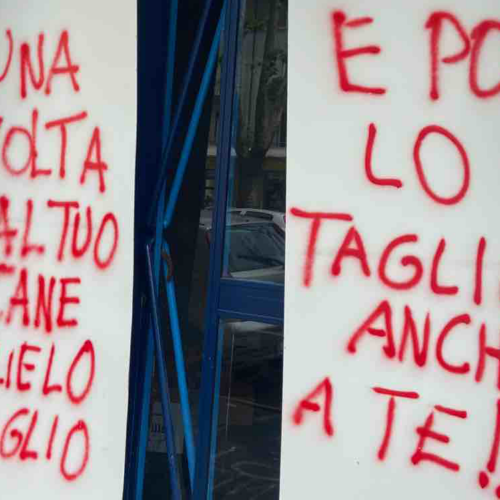 UNA
VOLTA
AL TUO
CANE
LIELO
GLIO
E PO
LO
TAGLI
ANCH
A TE!